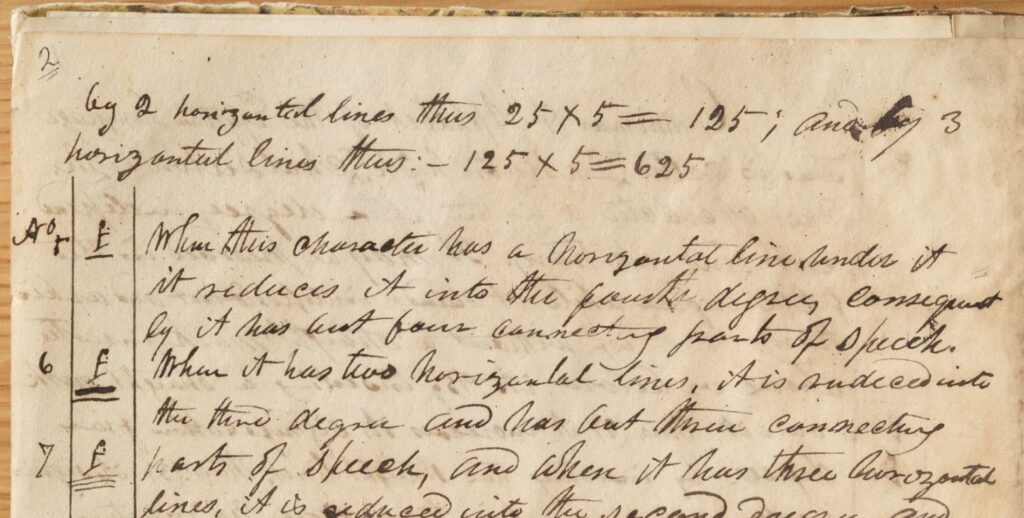 2
by 2 horizontal lines thus 25 x 5 = 125; and by 3
horizontal lines thus:- 125 x 5 = 625
No 5 E When this character has a horizontal line under it
it reduces it into the fourth degree, consequent
ly it has but four connecting parts of speech.
6 E When it has two horizontal lines, it is reduced into
the third degree and has but three connecting
7 E parts of speech, and when it has three horizontal
lines, it is reduced into the second degree and